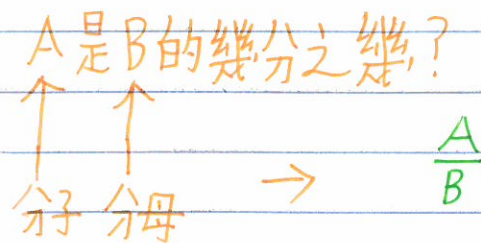 A是B的幾分之幾?
↑ ↑
分子 分母 → A/B